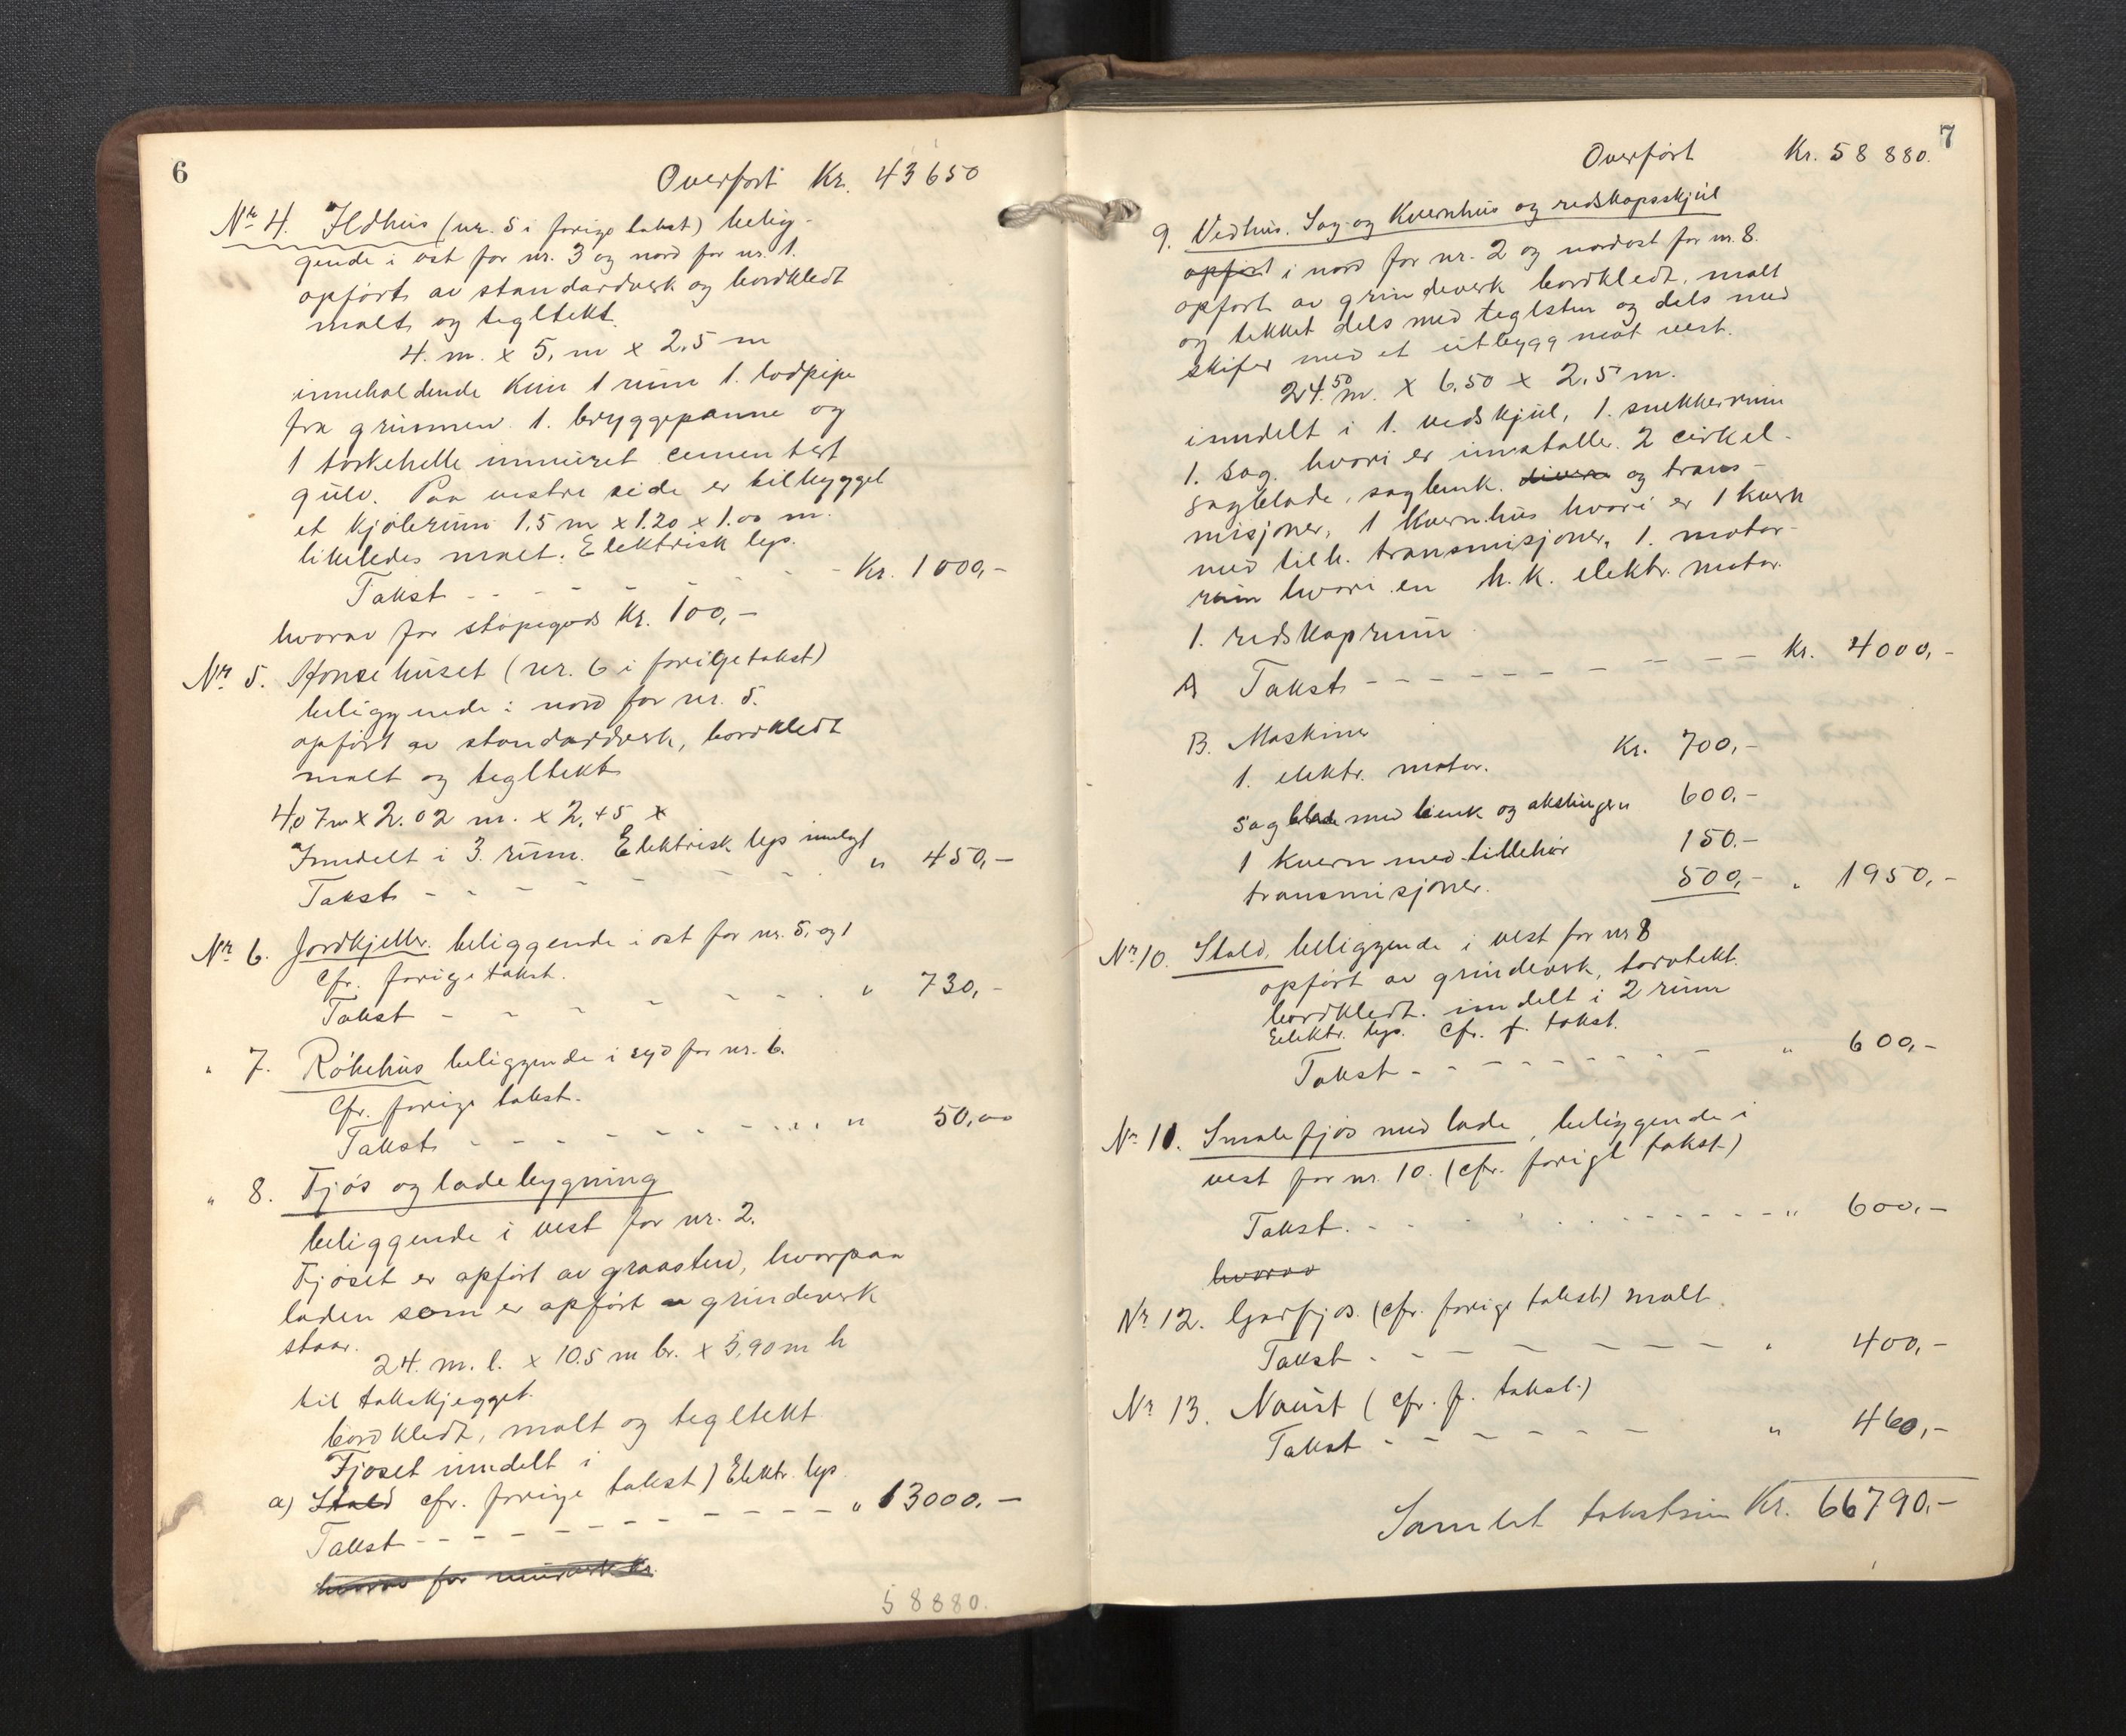 6
Overført Kr. 43650
Nr 4. Ildhus (nr. 5 i forige takst) belig-
gende i øst for nr. 3 og nord for nr. 1.
opført av standardverk og bordkledt
malt og tegltekt.
4. m. x 5. m x 2.5 m
inneholdende kun 1 rum 1. lodpipe
fra grunnen. 1. bryggepanne og
1 tørkehelle innmuret cementert
gulv. Paa vestre side er tilbygget
et kjølerum 1.5 m x 1.20 x 1.00 m.
likeledes malt. Elektrisk lys.
Takst - - - - - - - Kr. 1000,-
hvorav for støpegods Kr. 100,-
Nr 5. Hønsehuset (nr. 6 i forige takst)
beliggende i nord for nr. 5.
opført av standardverk, bordkledt
malt og tegltekt
4,07m x 2.02 m. x 2.45 x
Inndelt i 3. rum. Elektrisk lys innlagt
Takst - - - - - - - " 450,-
Nr 6. Jordkjeller. beliggende i øst for nr. 5. og 1
cfr. forige takst.
Takst - - - - - - - " 730,-
" 7. Røkehus beliggende i syd for nr. 6.
cfr. forige takst.
Takst - - - - - - - " 50,00
" 8. Fjøs og ladebygning
beliggende i vest for nr. 2.
Fjøset er opført av graasten, hvorpaa
laden som er opført av grindeverk
staar.
24. m. l. x 10.5 m br. x 5,90 m h
til takskjegget.
bordkledt, malt og tegltekt
Fjøset inndelt i
a) Stald cfr. forige takst) Elektr. lys.
Takst - - - - - - - " 13000,-
hvorav for murverk Kr.
58880.
7
Overført Kr. 58 880.
9. Vedhus. Sag og Kvernhus og redskapsskjul
opført i nord for nr. 2 og nordost for nr. 8.
opført av grindeverk bordkledt, malt
og tekket dels med teglsten og dels med
skifer med et utbygg mot vest.
24.50 m. x 6.50 x 2.5 m.
inndelt i 1. vedskjul, 1. snekkerrum
1. sag. hvori er innstaller. 2 cirkel-
sagblade, sagbenk. diverse og trans-
misjoner, 1 Kvernhus hvori er 1 kvern
med tilh. transmisjoner, 1. motor-
rum hvori en h.k. elektr. motor.
1. redskaprum
A Takst - - - - - - - Kr. 4000,-
B. Maskiner
1. elektr. motor. Kr. 700,-
Sagblade med benk og akslinger " 600,-
1 kvern med tillehør 150.-
transmisjoner. 500,- " 1950,-
Nr 10. Stald, beliggende i vest for nr 8
opført av grindeverk, torvtekt.
bordkledt. inndelt i 2 rum
Elektr. lys. cfr. f. takst.
Takst - - - - - - - " 600,-
Nr 11. Smalefjøs med lade, beliggende i
vest for nr. 10. (cfr. forige takst)
Takst. - - - - - - - " 600,-
hvorav
Nr 12. Gardfjøs. (cfr. forige takst) malt.
Takst - - - - - - - " 400,-
Nr 13. Naust (cfr. f. takst.)
Takst - - - - - - - " 460,-
Samlet takstsum Kr. 66790,-